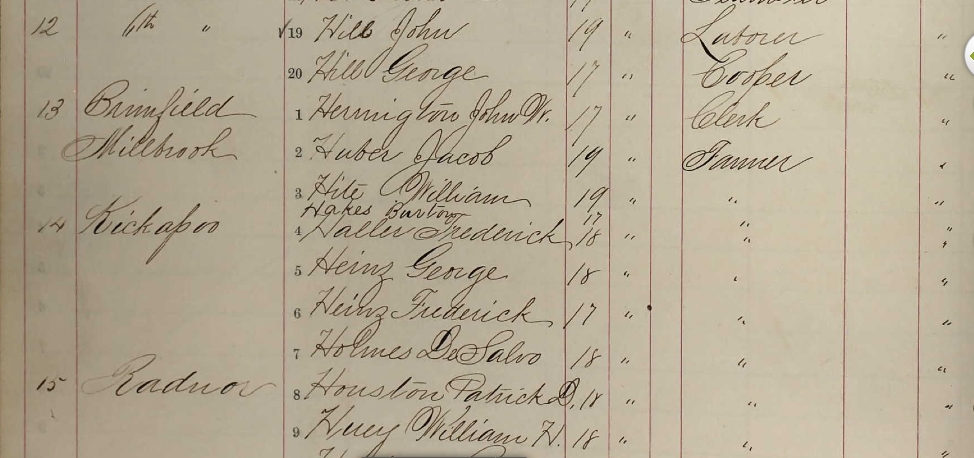 12 6th " √19 Hill John 19 " Laborer "
20 Hill George 17 " Cooper "
13 Brimfield 1 Hermington John W. 17 " Clerk "
Millbrook 2 Huber Jacob 19 " Farmer "
3 Hite William 19 " " "
Hakes Burton 17 " "
14 Kickapoo 4 Haller Frederick 18 " " "
5 Heinz George 18 " " "
6 Heinz Frederick 17 " " "
7 Holmes De Salvo 18 " " "
15 Radnor 8 Houston Patrick D. 18 " " "
9 Huey William H. 18 " " "